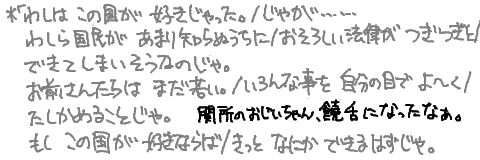 *「わしは この国が 好きじゃった。/じゃが……
わしら国民が あまり知らぬうちに/おそろしい法律が つぎつぎと/
できてしまいそうなのじゃ。
お前さんたちは まだ若い。/いろんな事を 自分の目で よ〜く/
たしかめることじゃ。 関所のおじいちゃん、饒舌になったなぁ。
もし この国が 好きならば/きっと なにか できるはずじゃ。